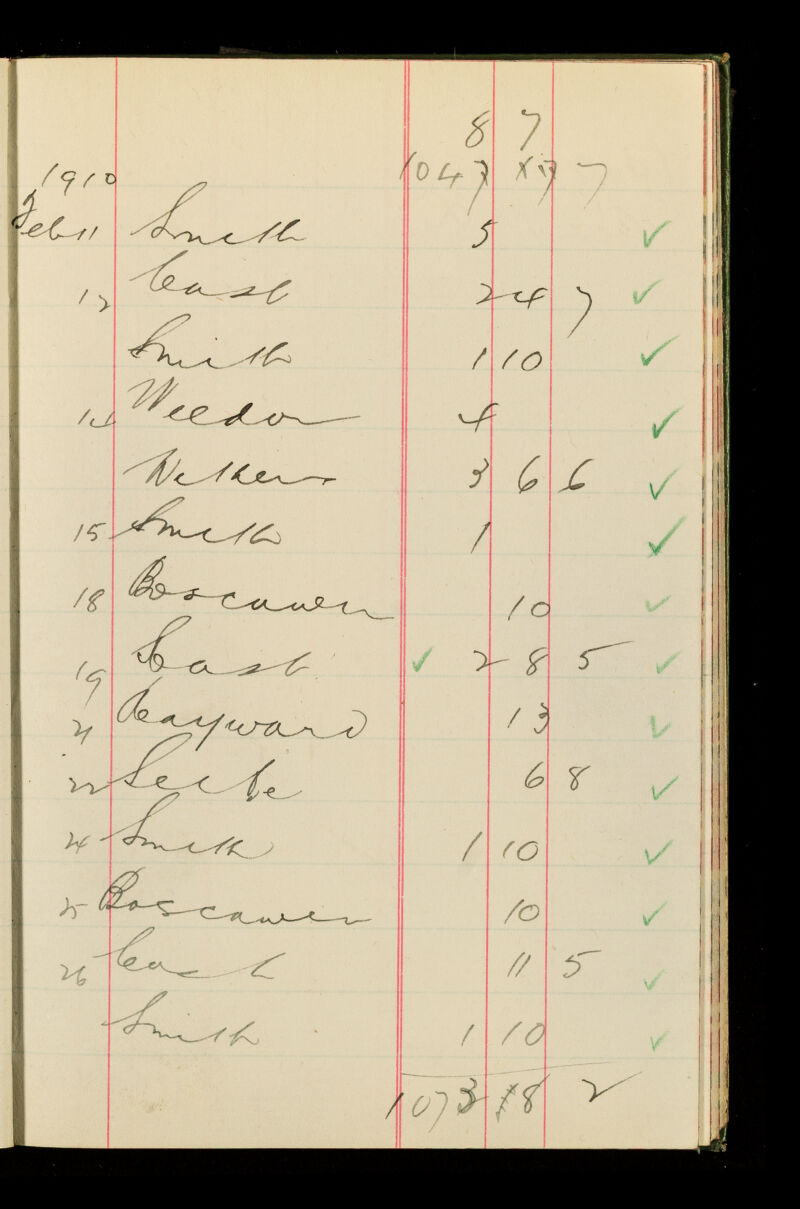 8 7
1910 1047 17 7
Feb 11 Smith 5
12 Cash 2 4 7
Smith 1 10
14 Weedon 4
3 6 6
15 Smith 1
18 Boscawen 10
19 Cash ✓ 2 8 5
21 Hayward 13
22 6 8
24 Smith 1 10
25 Boscawen 10
26 Cash 11 5
Smith 1 10
1073 18 2